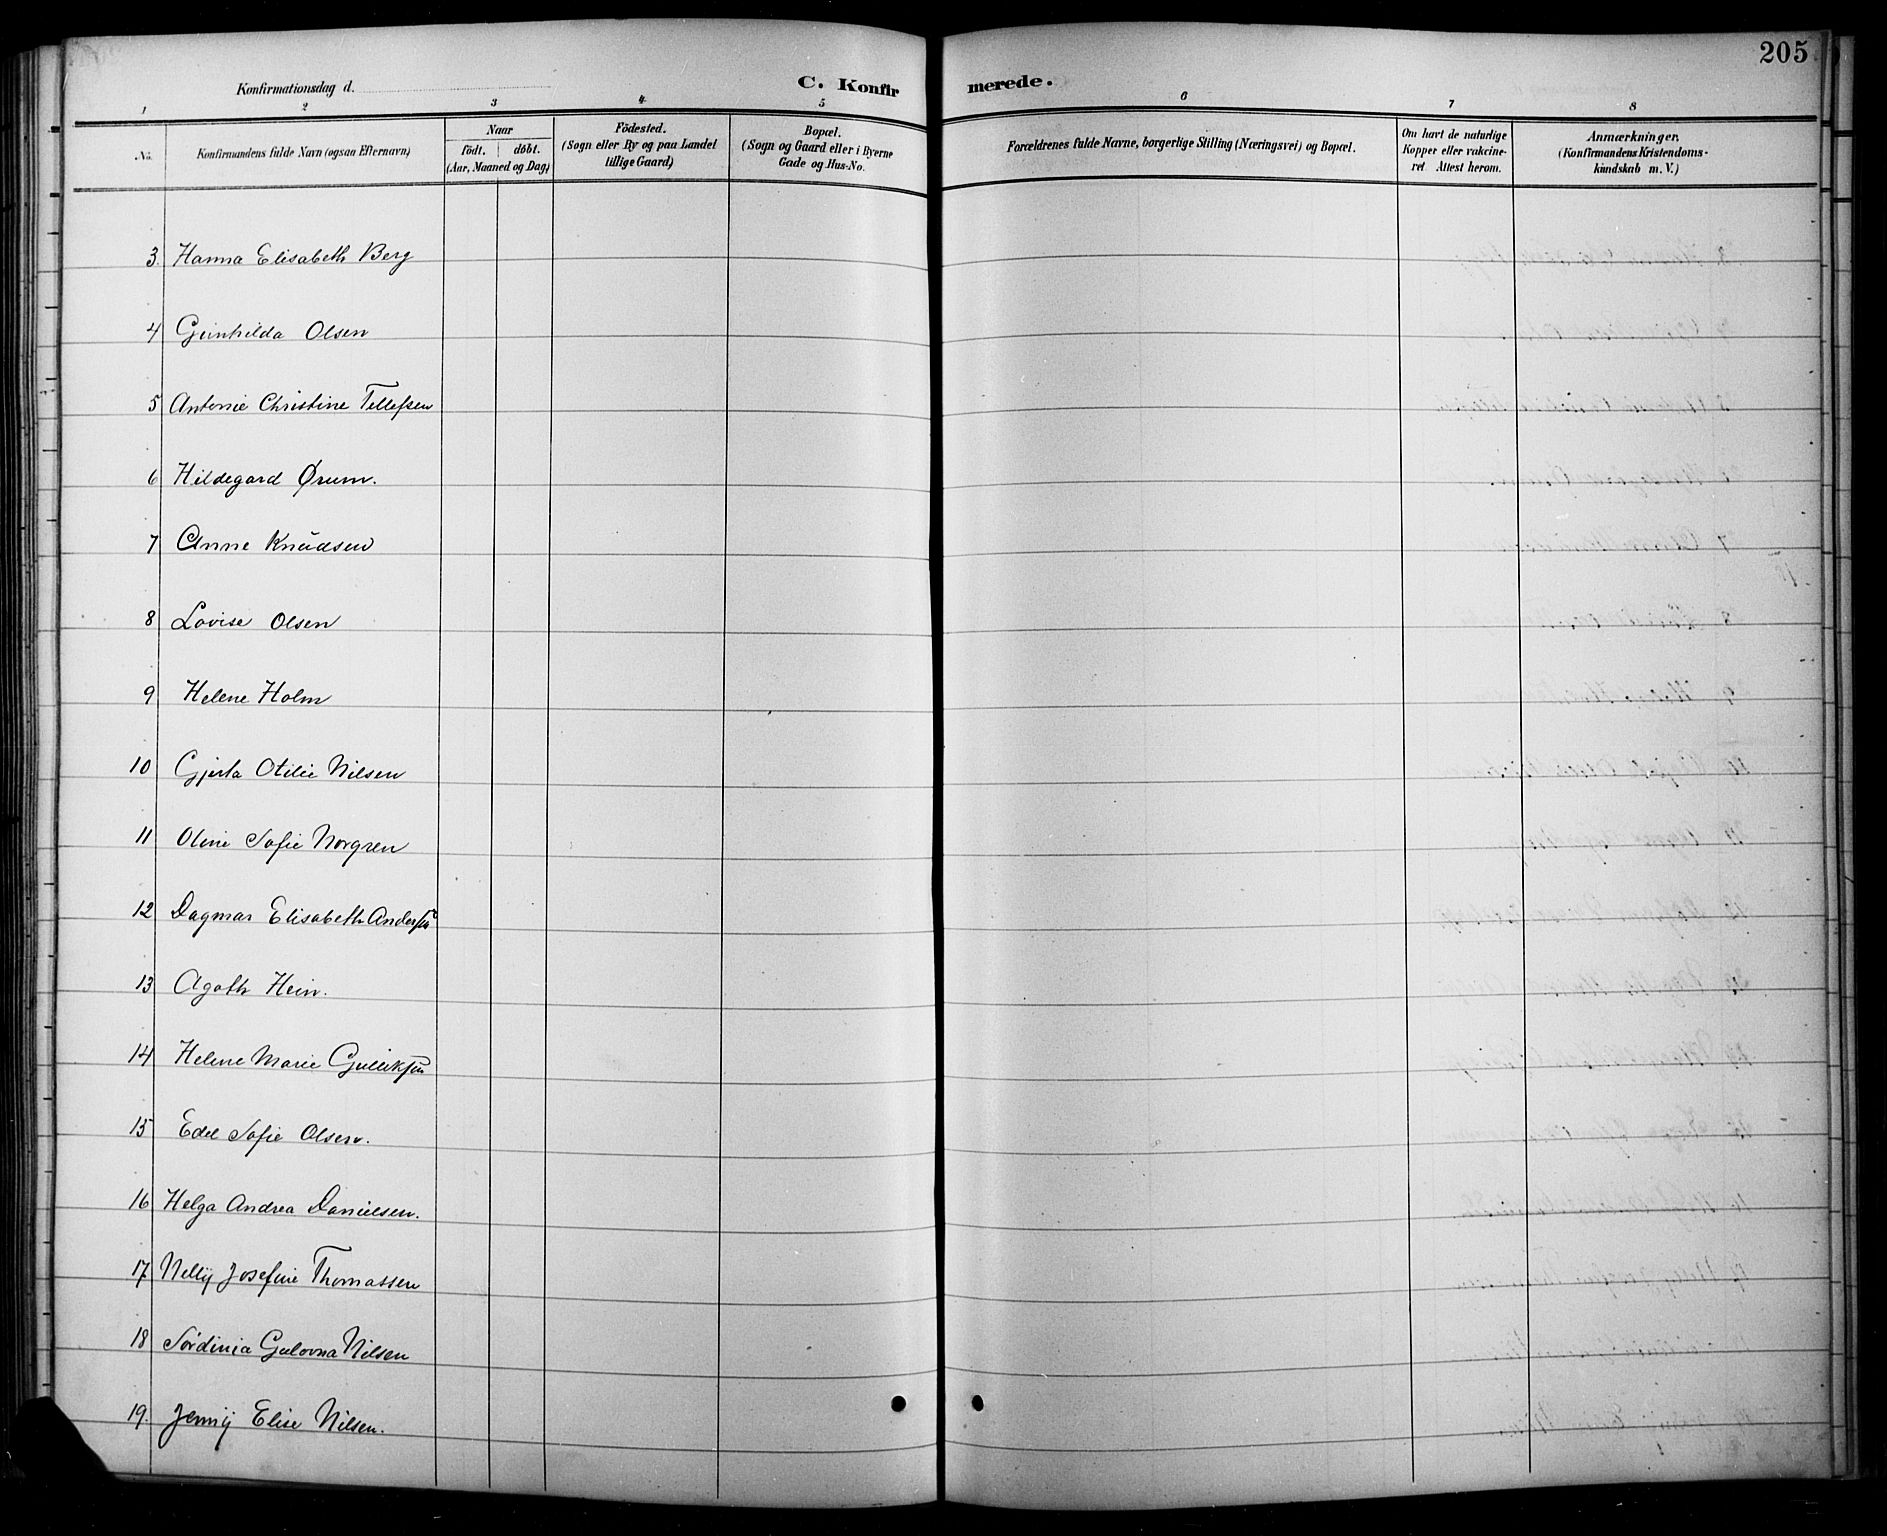 205
Konfirmationsdag d.
C. Konfirmerede.
1 2 3 4 5 6 7 8
No.
Konfirmandens fulde Navn (ogsaa Efternavn)
Naar
födt. döbt.
(Aar, Maaned og Dag)
Födested.
(Sogn eller By og paa Landet
tillige Gaard)
Bopæl.
(Sogn og Gaard eller i Byerne
Gade og Hus-No.
Forældrenes fulde Navne, borgerlige Stilling (Næringsvei) og Bopæl.
Om havt de naturlige
Kopper eller vakcine-
ret. Attest herom.
Anmærkninger.
(Konfirmandens Kristendoms-
kundskab m. V.)
3. Hanna Elisabeth Berg
4 Gunhilda Olsen
5 Antonie Christine Tellefsen
6 Hildegard Ørum.
7 Anne Knudsen
8 Lovise Olsen
9 Helene Holm
10 Gjerta Otilie Nilsen
11 Oline Sofie Norgren
12 Dagmar Elisabeth Andersen
13 Agath Hein.
14 Helene Marie Gulliksen
15 Edel Sofie Olsen.
16 Helga Andrea Danielsen.
17 Nelly Josefine Thomassen
18 Nilsen
19. Jenny Elise Nilsen.